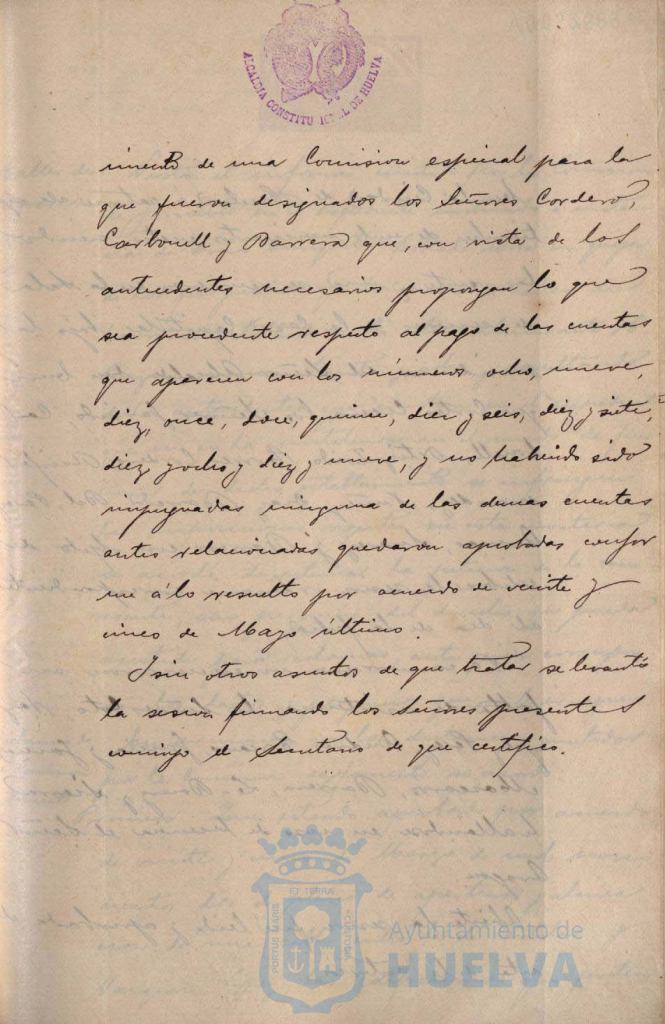 ALCALDIA CONSTITUCIONAL DE HUELVA
miento de una Comision especial para la
que fueron designados los Señores Cordero,
Carbonell y Barrera que, con vista de los
antecedentes necesarios propongan lo que
sea procedente respecto al pago de las cuentas
que aparecen con los números ocho, nueve,
diez, once, doce, quince, diez y seis, diez y siete,
diez y ocho y diez y nueve, y no habiendo sido
impugnadas ninguna de las demas cuentas
antes relacionadas quedaron aprobadas confor
me á lo resuelto por acuerdo de veinte y
cinco de Mayo último.
Y sin otros asuntos de que tratar se levantó
la sesion firmando los Señores presentes
conmigo el Secretario de que certifico.
ET TERRÆ
PORTUS MARIS
CUSTODIA
Ayuntamiento de
HUELVA